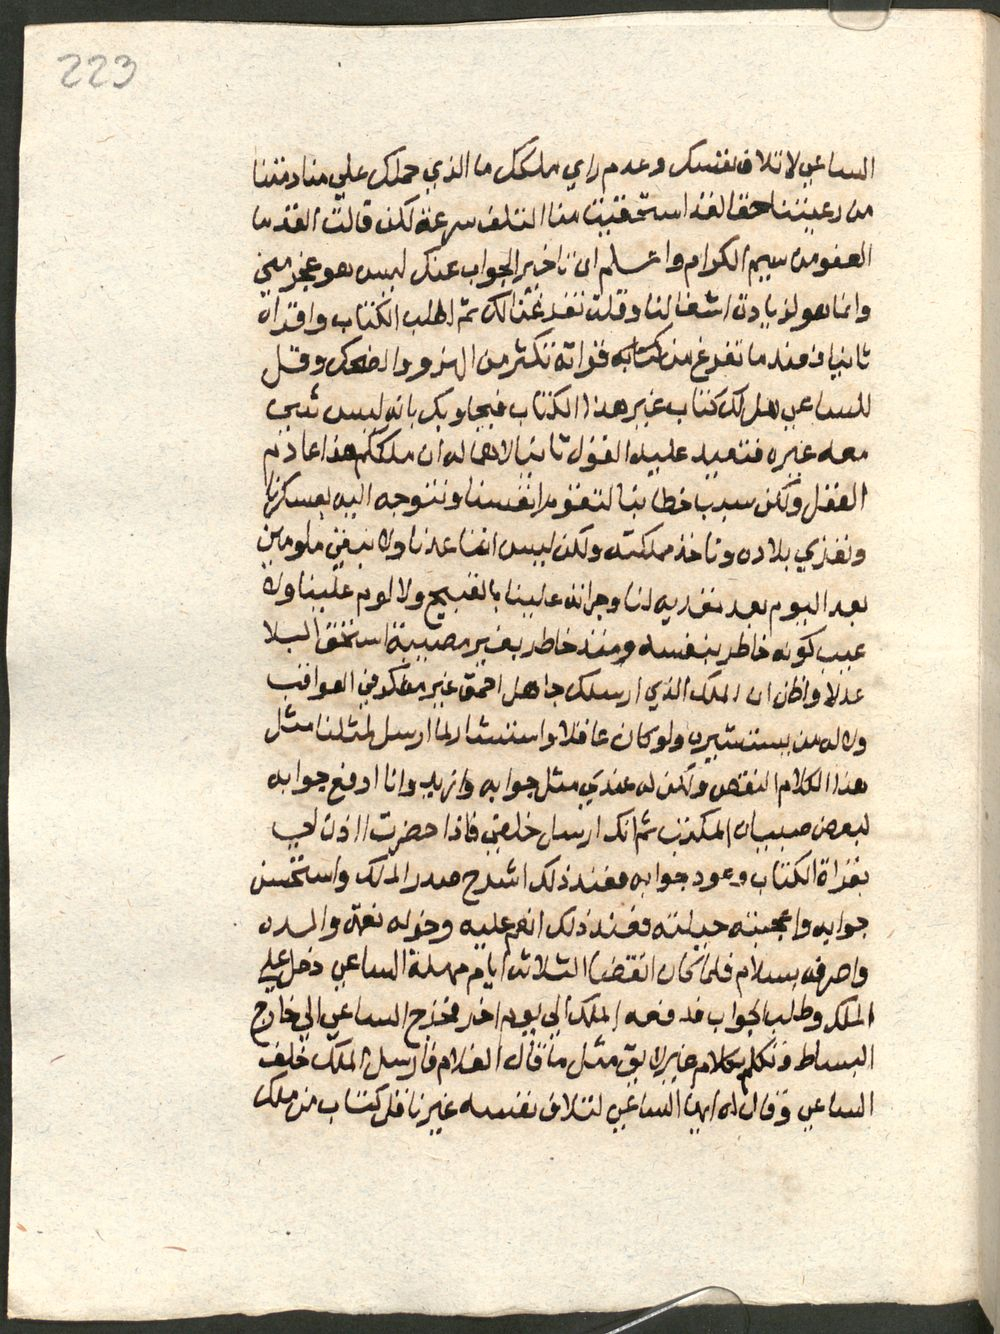 223
الساعي لاتلاف نفسك وعدم راي ملكك ما الذي حملك علي منادمتنا
من رعيتنا حقا لقد استحقيت منا التلف سرعة لكن قالت القدما
العفو من سيم الكرام واعلم ان تاخير الجواب عنك ليس هو عجز مني
وانما هو لزيادة اشغالنا وقلت تفرغنا لك ثم اطلب الكتاب واقراه
ثانيا فعند ما تفرغ من كتابه قراته تكثر من الهزو والضحك وقل
للساعي هل لك كتاب غير هذا الكتاب فيجاوبك بانه ليس شي
معه غيره فتعيد عليه القول ثانيا لاهما له ان ملككم هذا عادم
العقل ولكن سبب خطابنا لتقوم انفسنا ونتوجه اليه بعسكرنا
ونغزي بلاده وناخذ مملكته ولكن ليس اننا عدنا ولا نبقي ملومين
بعد اليوم بعد تعديه لنا وجراته علينا بالقبيح ولا لوم علينا ولا
عيب كونه خاطر بنفسه ومنذ خاطر بغير مصيبة استحق البلا
عدلا واظن ان الملك الذي ارسلك جاهل احمق غير مفكر في العواقب
ولا له من يستشيره ولو كان عاقلا واستشار لما ارسل لمثلنا مثل
هذا الكلام النقص ولكن له عندي مثل جوابه وازيد وانا ادفع جوابه
لبعض صبيان المكتب ثم انك ارسل خلفي فاذا حضرت ااذن لي
بقراة الكتاب وعود جوابه فعند ذلك اشرح صدر الملك واستحسن
جوابه واعجبته حيلته فعند ذلك انعم عليه وخوله نعمة والده
واصرفه بسلام فلما كان انقضا الثلاثة ايام مهلة الساعي دخل علي
الملك وطلب الجواب فدفعه الملك الي يوم اخر فخرج الساعي الي خارج
البساط وتكلم بكلام غير لايق مثل ما قال الغلام فارسل الملك خلف
الساعي وقال له ايها الساعي لتلاف نفسه غير ناقل كتاب من ملك